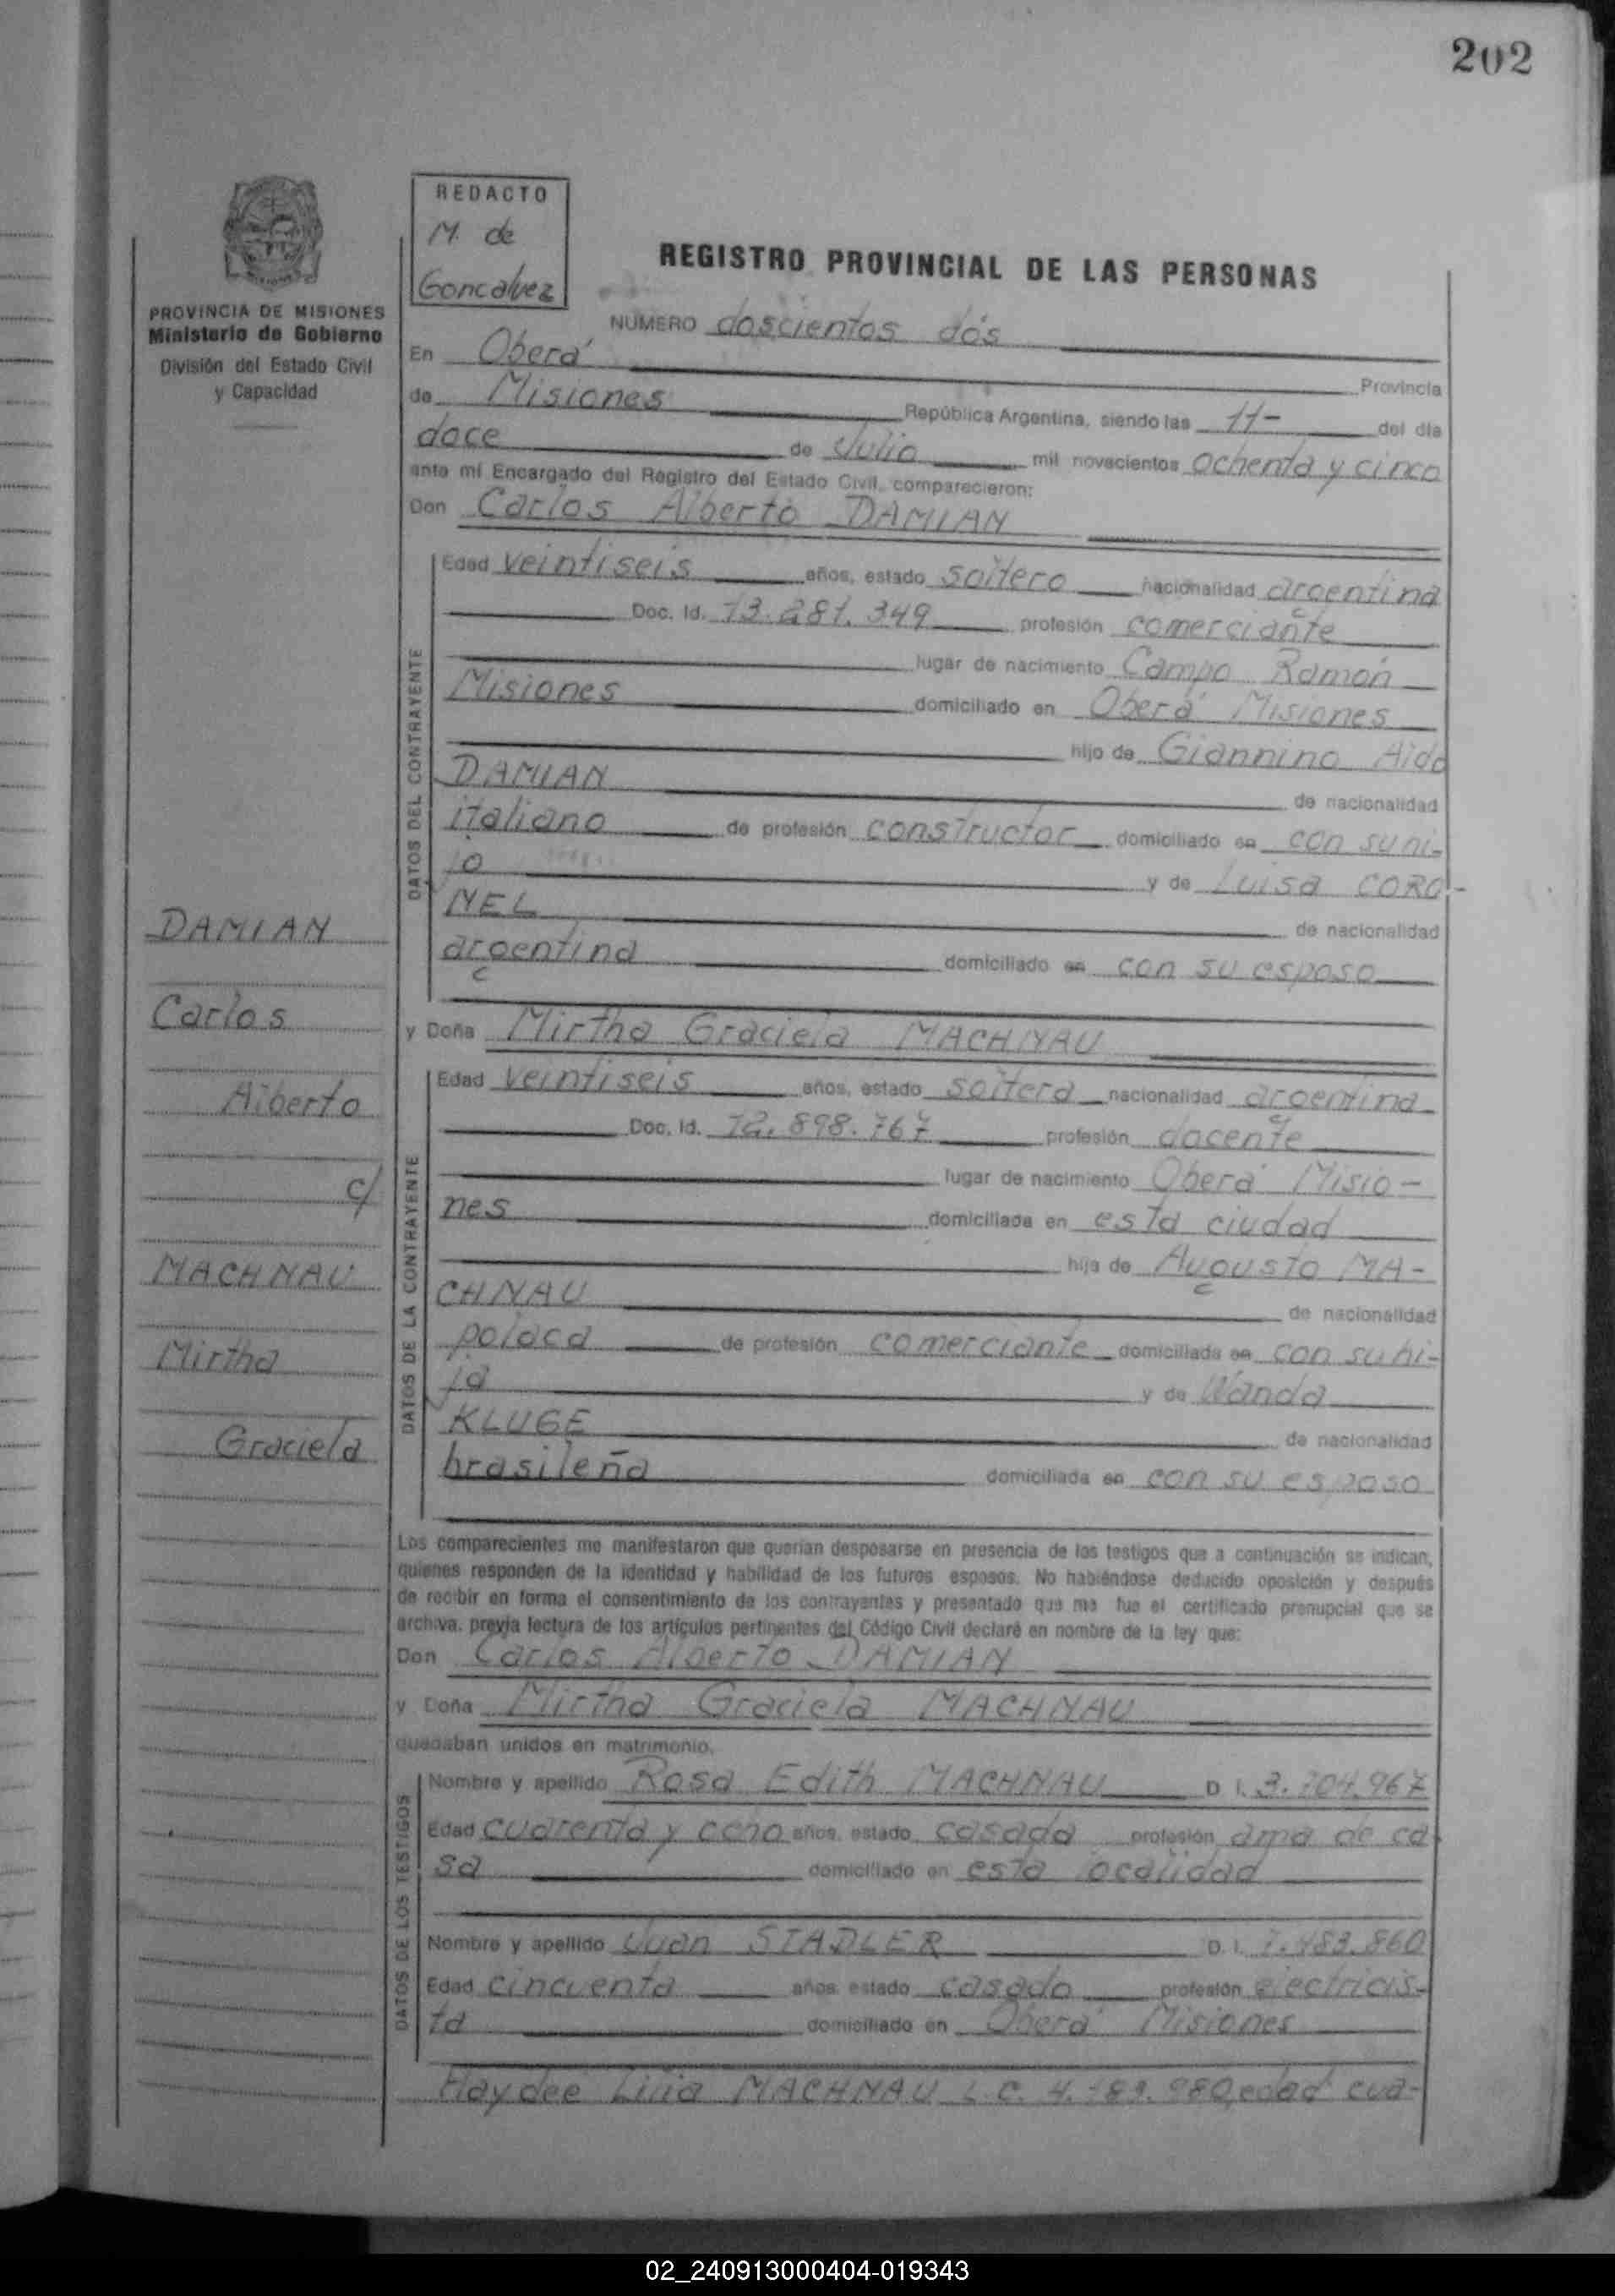 202
REDACTO
M. de
Goncalvez
PROVINCIA DE MISIONES
Ministerio de Gobierno
División del Estado Civil
y Capacidad
REGISTRO PROVINCIAL DE LAS PERSONAS
NUMERO doscientos dós
En Oberá Provincia
de Misiones República Argentina, siendo las 11- del día
doce de Julio mil novecientos ochenta y cinco
ante mí Encargado del Registro del Estado Civil, comparecieron:
Don Carlos Alberto DAMIAN
DATOS DEL CONTRAYENTE
Edad veintiseis años, estado soltero nacionalidad argentina
Doc. Id. 13.281.349 profesión comerciante
lugar de nacimiento Campo Ramón
Misiones domiciliado en Oberá Misiones
hijo de Giannino Aldo
DAMIAN de nacionalidad
italiano de profesión constructor domiciliado en con su hi-
jo y de Luisa CORO-
NEL de nacionalidad
argentina domiciliado en con su esposo
y Doña Mirtha Graciela MACHNAU
DATOS DE LA CONTRAYENTE
Edad veintiseis años, estado soltera nacionalidad argentina
Doc. Id. 12.898.767 profesión docente
lugar de nacimiento Oberá Misio-
nes domiciliada en esta ciudad
hija de Augusto MA-
CHNAU de nacionalidad
polaca de profesión comerciante domiciliada en con su hi-
ja y de Wanda
KLUGE de nacionalidad
brasileña domiciliada en con su esposo
DAMIAN
Carlos
Alberto
c/
MACHNAU
Mirtha
Graciela
Los comparecientes me manifestaron que querían desposarse en presencia de los testigos que a continuación se indican,
quienes responden de la identidad y habilidad de los futuros esposos. No habiéndose deducido oposición y después
de recibir en forma el consentimiento de los contrayentes y presentado que me fue el certificado prenupcial que se
archiva, previa lectura de los artículos pertinentes del Código Civil declaré en nombre de la ley que:
Don Carlos Alberto DAMIAN
y Doña Mirtha Graciela MACHNAU
quedaban unidos en matrimonio.
DATOS DE LOS TESTIGOS
Nombre y apellido Rosa Edith MACHNAU D. I. 3.704.967
Edad cuarenta y ocho años, estado casada profesión ama de ca
sa domiciliado en esta localidad
Nombre y apellido Juan STADLER D. I. 7.483.860
Edad cincuenta años estado casado profesión electricis-
ta domiciliado en Oberá Misiones
Haydee Lilia MACHNAU L.C. edad cua-
02_240913000404-019343